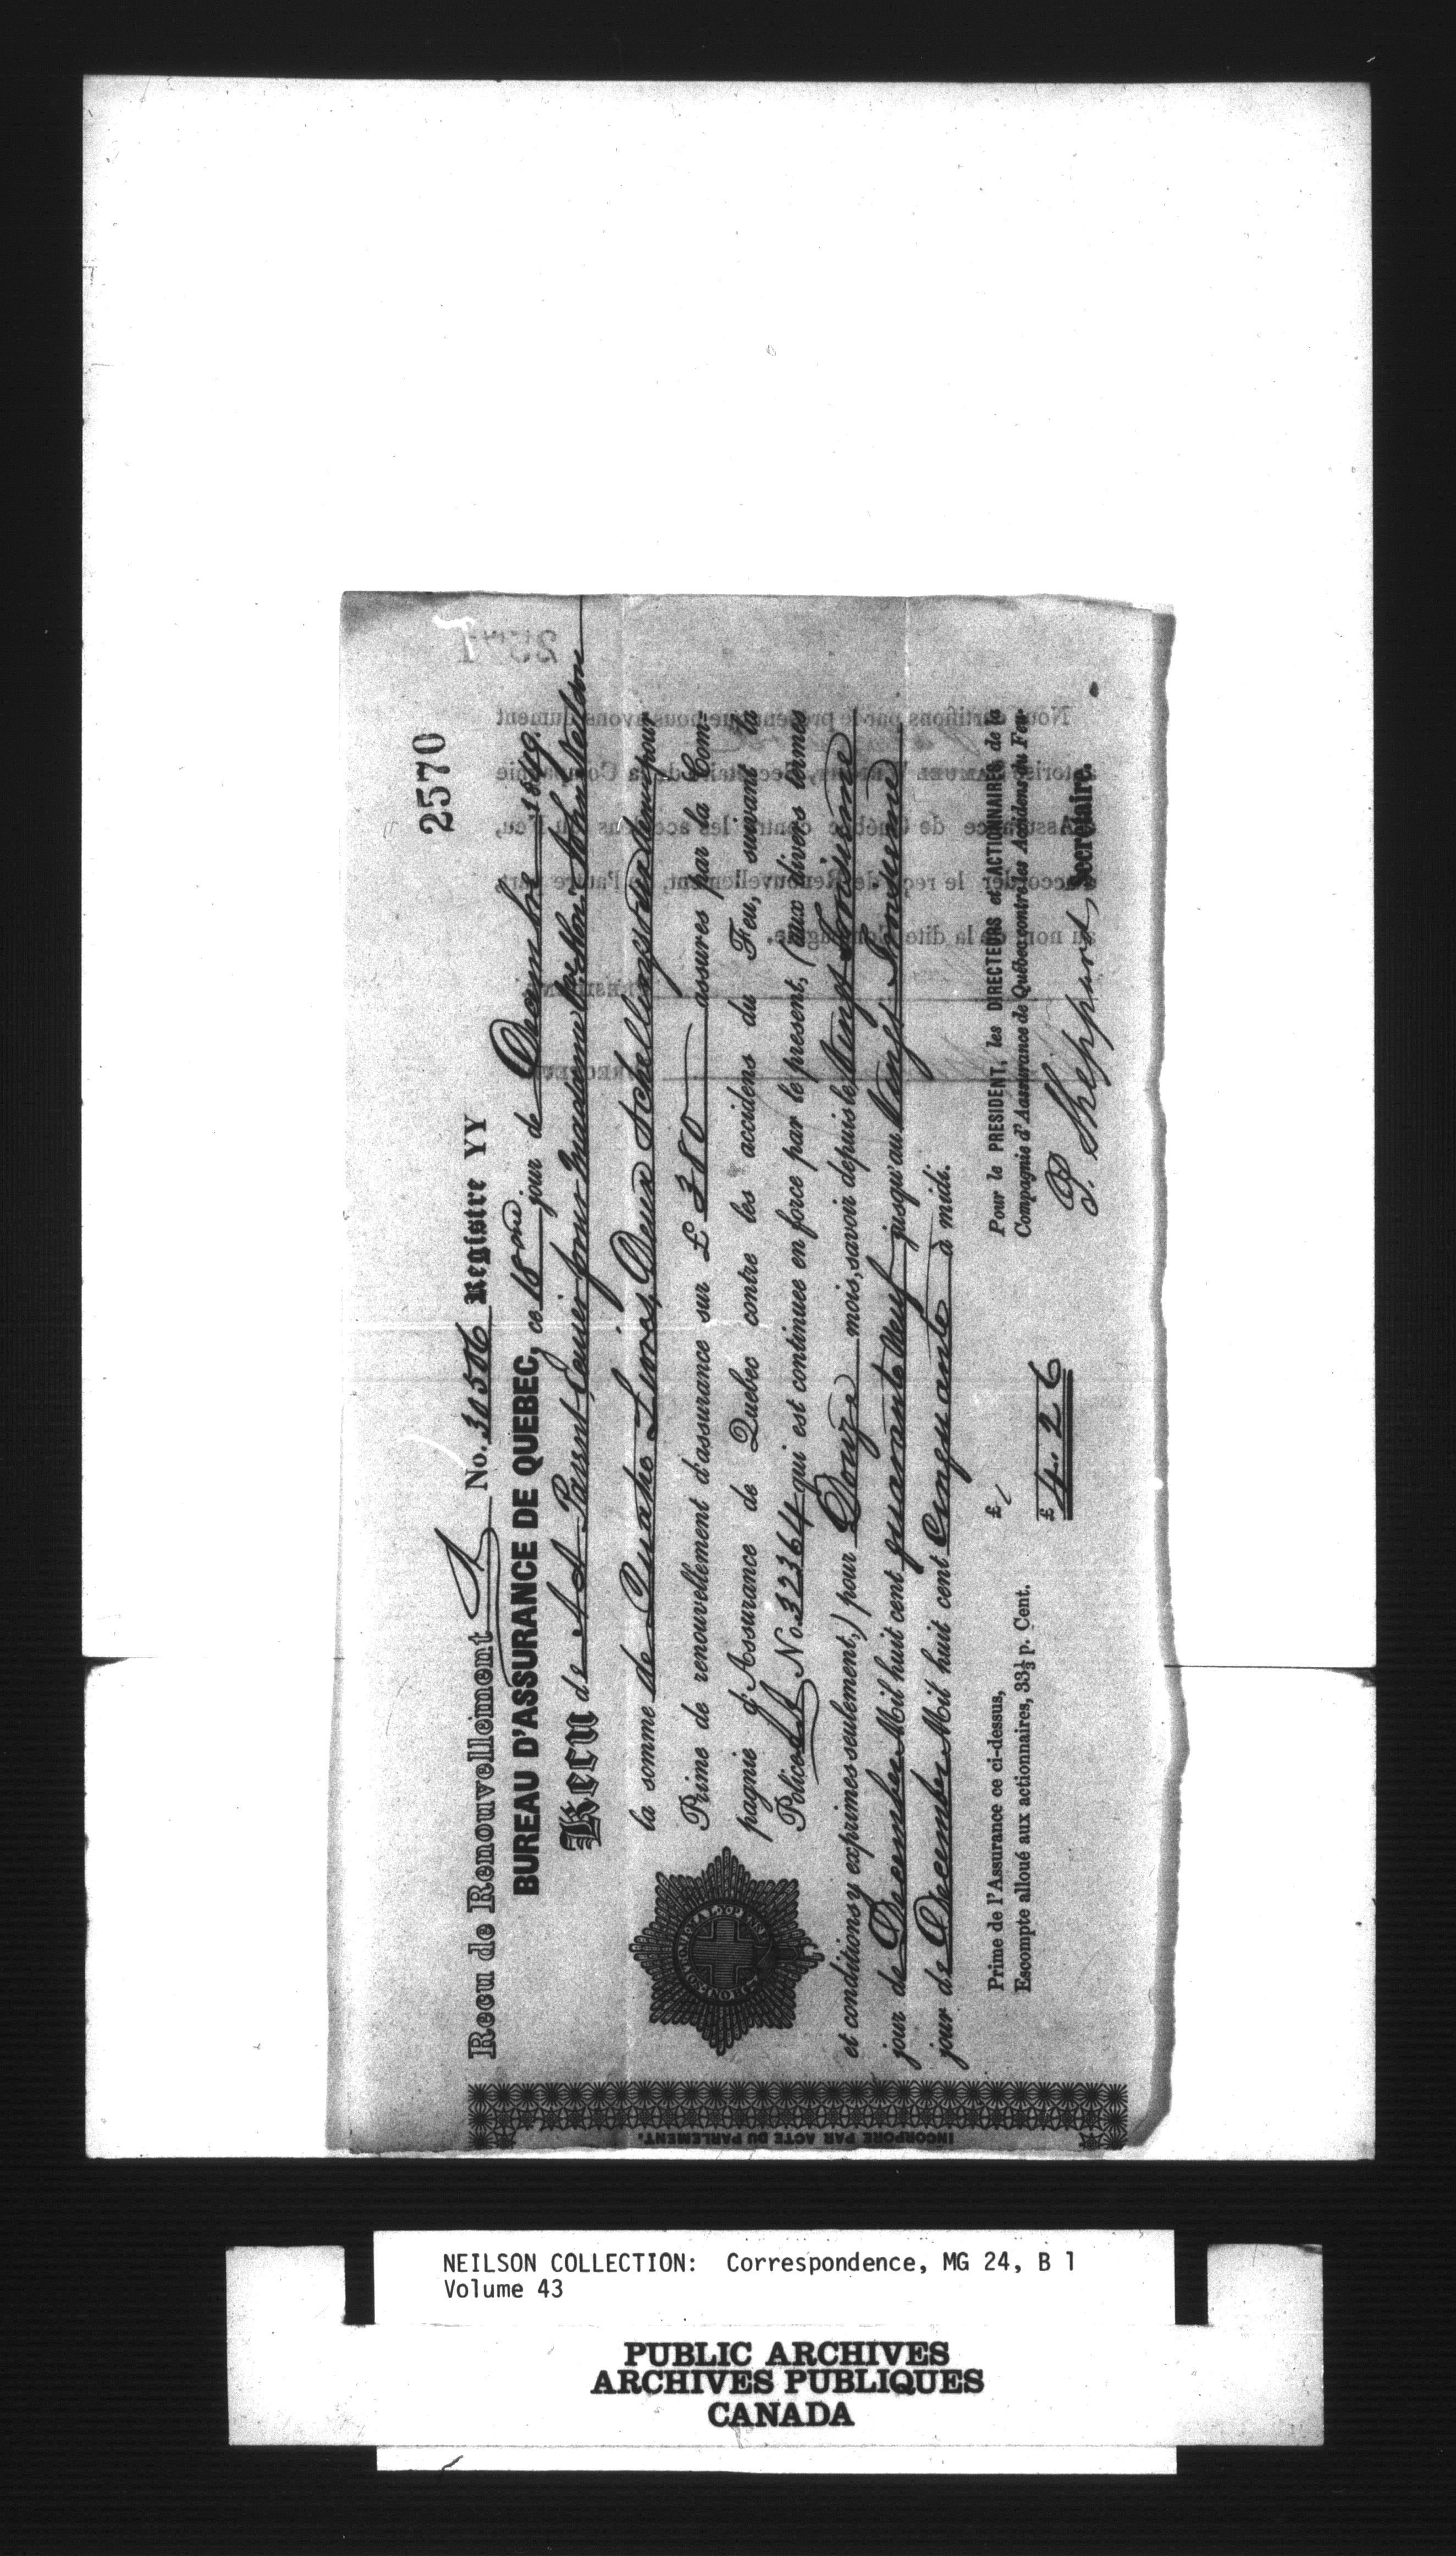 2570
Recu de Renouvellement No. 30586 Registre YY
BUREAU D'ASSURANCE DE QUEBEC, ce 18me jour de Decembre 1849.
Recu de A A Parent Ecuier pour Madame John Neilson
la somme de Quatre Livres, Deux Schellings pour
Prime de renouvellement d'assurance sur £ 380 assures par la Com-
pagnie d'Assurance de Quebec contre les accidens du Feu, suivant la
Police No. 32364 qui est continuee en force par le present, (aux divers termes
et conditions y exprimes seulement,) pour Douze mois, savoir depuis le Vingt Troisieme
jour de Decembre Mil huit cent quarante Neuf jusqu'au Vingt Troisieme
jour de Decembre Mil huit cent Cinquante à midi.
Prime de l'Assurance ce ci-dessus, £
Escompte alloué aux actionnaires, 33⅓ p. Cent.
£ 4.. 2 6
Pour le PRESIDENT, les DIRECTEURS et ACTIONNAIRES de la
Compagnie d'Assurance de Québec contre les Accidens du Feu.
P. Sheppard, Secrétaire.
INCORPORE PAR ACTE DU PARLEMENT.
2571
Nous certifions par le present que nous avons dument
de la Compagnie
d'Assurance de Québec contre les accidens du Feu,
accorder le reçu de Renouvellement, de l'autre part,
au nom de la dite Compagnie.
NEILSON COLLECTION: Correspondence, MG 24, B 1
Volume 43
PUBLIC ARCHIVES
ARCHIVES PUBLIQUES
CANADA